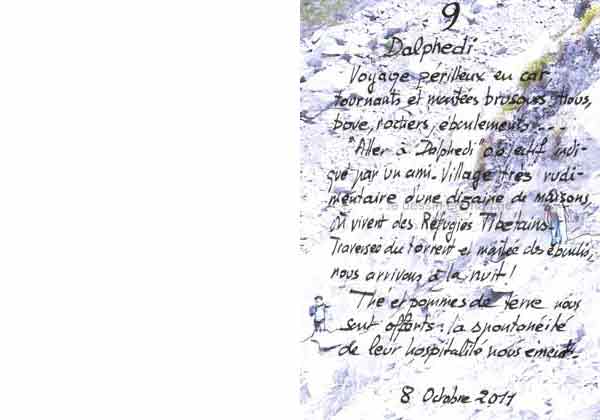 9
Dalphedi
Voyage périlleux en car,
tournants et montées brusques, trous,
boue, rochers, éboulements ...
"Aller à Dalphedi" objectif indi-
qué par un ami. Village très rudi-
mentaire d'une dizaine de maisons,
où vivent des Réfugiés Tibétains.
Traversée du torrent et montée des éboulis,
nous arrivons à la nuit !
Thé et pommes de terre nous
sont offerts : la spontanéité
de leur hospitalité nous émeut.
8 Octobre 2011